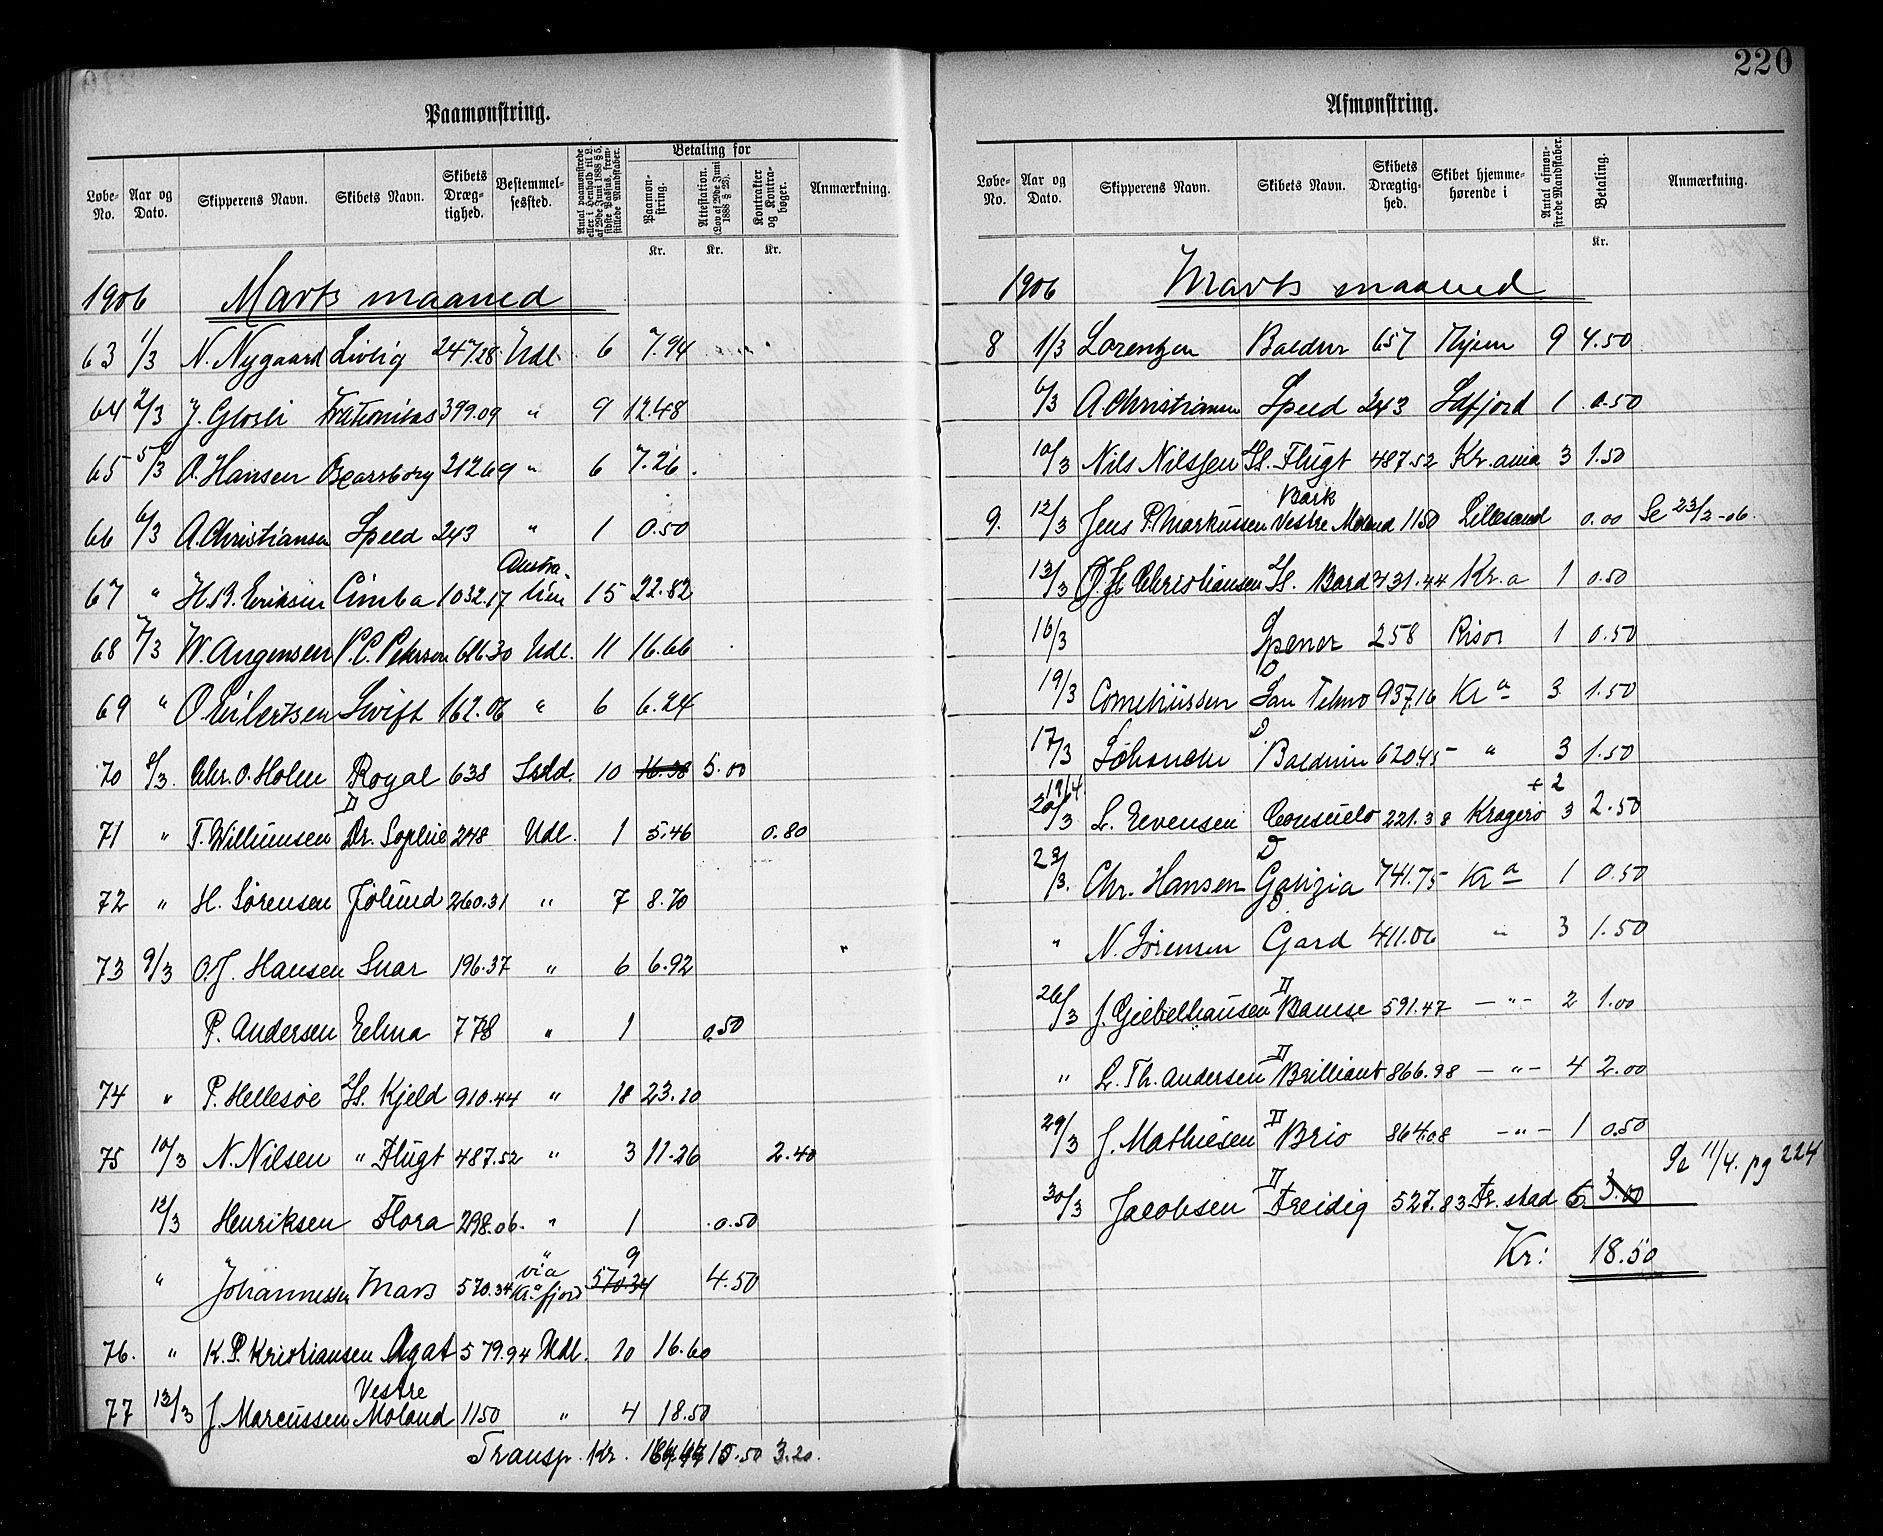 220
Paamønstring.
Løbe-No. Aar og Dato. Skipperens Navn. Skibets Navn. Skibets Dræg-tighed. Bestemmel-sessted. Antal paamønstrede eller i Henhold til L. af 29de Juni 1888 § 5, sidste Passus, frem-stillede Mandskaber. Betaling for Paamøn-string. Attestation. (Lov af 29de Juni 1888 § 23). Kontrakter og Kontra-bøger. Anmærkning.
Kr. Kr. Kr.
1906 Marts maaned
63 1/3 N. Nygaard Livlig 247.28 Udl. 6 7.94
64 2/3 J. Glosli Fraternitas 399.09 " 9 12.48
65 5/3 O. Hansen Oscarsborg 212.69 " 6 7.26
66 6/3 A. Christiansen Speed 243 " 1 0.50
67 " H. B. Eriksen Cimba 1032.17 Austra-lien 15 22.82
68 7/3 W. Angensen P. C. Petersen 616.30 Udl. 11 16.66
69 " O Eilertsen Swift 162.06 " 6 6.24
70 8/3. Chr. O. Holm Royal 638 Indl. 10 16.38 5.00
71 " T. Willumsen D Dr. Sophie 248 Udl. 1 5.46 0.80
72 " H. Sørensen Jølund 260.31 " 7 8.70
73 9/3 O. J. Hansen Snar 196.37 " 6 6.92 "
P. Andersen Elma 778 " 1 0.50
74 " P. Hellesøe H. Kjeld 910.44 " 18 23.20
75 10/3 N. Nilsen " Flugt 487.52 " 3 11.26 2.40
12/3 Henriksen Flora 298.06. " 1 0.50
" Johannessen Mars 570.34 " via Kr.a fjord 570.34 9 4.50
76. " K. P. Kristiansen Agat 579.94 Udl. 10 16.60
77 13/3 J. Marcussen Vestre Moland 1150 " 4 18.50
Transp. Kr. 10.50 3.20.
Afmønstring.
Løbe-No. Aar og Dato. Skipperens Navn. Skibets Navn. Skibets Drægtig-hed. Skibet hjemme-hørende i Antal afmøn-strede Mandskaber. Betaling. Anmærkning.
Kr.
1906 Marts maaned
8 1/3 Lorentzen Baldur 657 Thjem 9 4.50
6/3 A. Christiansen Speed 243 Idfjord 1 0.50
10/3 Nils Nilssen H. Flugt 487.52 Kr. ania 3 1.50
9. 12/3 Jens P. Markussen Bark Vestre Moland 1150 Lillesand 0.00 Se 23/2-06.
13/3 O. H. Christiansen H. Bard 431.44 Kr. a 1 0.50
16/3 Spener 258 Risør 1 0.50
19/3 Corneliussen D San Telmo 937.16 Kr a 3 1.50
17/3 D Baldwin 620.45 " 3 1.50
19/4 20/3 L. Evensen Consuelo 221.38 Kragerø 3 + 2 2.50
22/3. Chr. Hansen D Galizia 741.75 Kr a 1 0.50
" N. Sørensen D Gard 411.06 " 3 1.50
26/3 J. Giebelhausen D Bamse 591.47 - " - 2 1.00
" L. Th. Andersen D Brilliant 866.98 - " - 4 2.00
29/3 J. Mathiesen D Brio 864.08 - " - 1 0.50
30/3 Jacobsen D Freidig 527.83 Fr. stad 6 3.00 Se 11/4. pg 224
Kr: 18.50